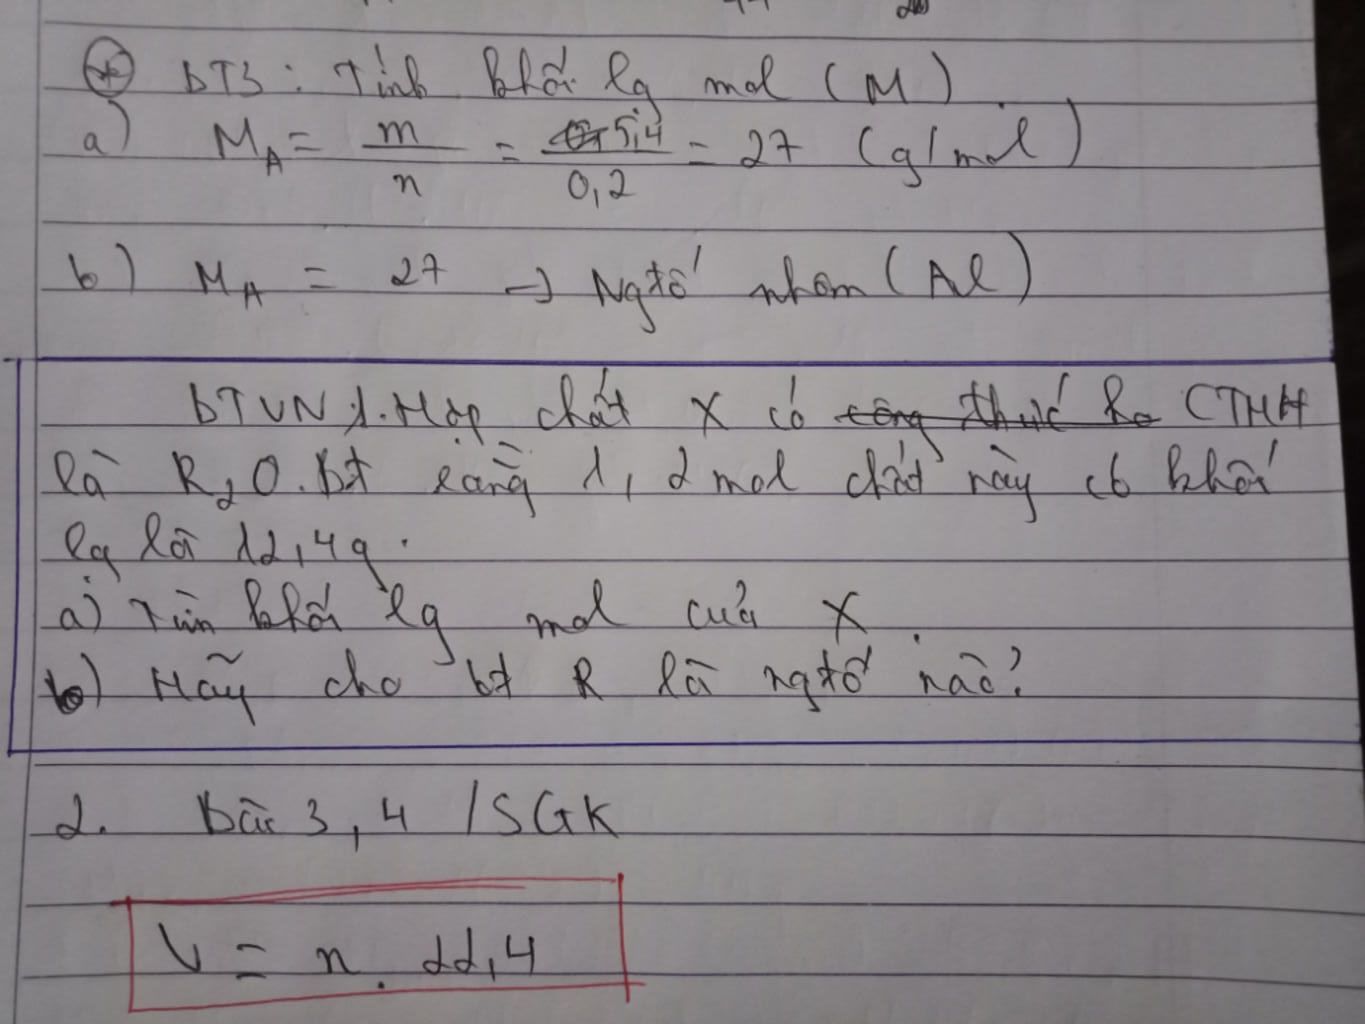 BT3: Tính khối lg mol (M).
a) M_A = m/n = 5,4/0,2 = 27 (g/mol)
b) M_A = 27 → Ngtố nhôm (Al)
BTVN 1. Hợp chất X có công thức ho CTHH
là R₂O. Bt rằng 1,2 mol chất này có khối
lg là 12,4g.
a) Tìm khối lg mol của X.
b) Hãy cho bt R là ngtố nào?
2. Bài 3, 4 /SGK
V = n. 22,4